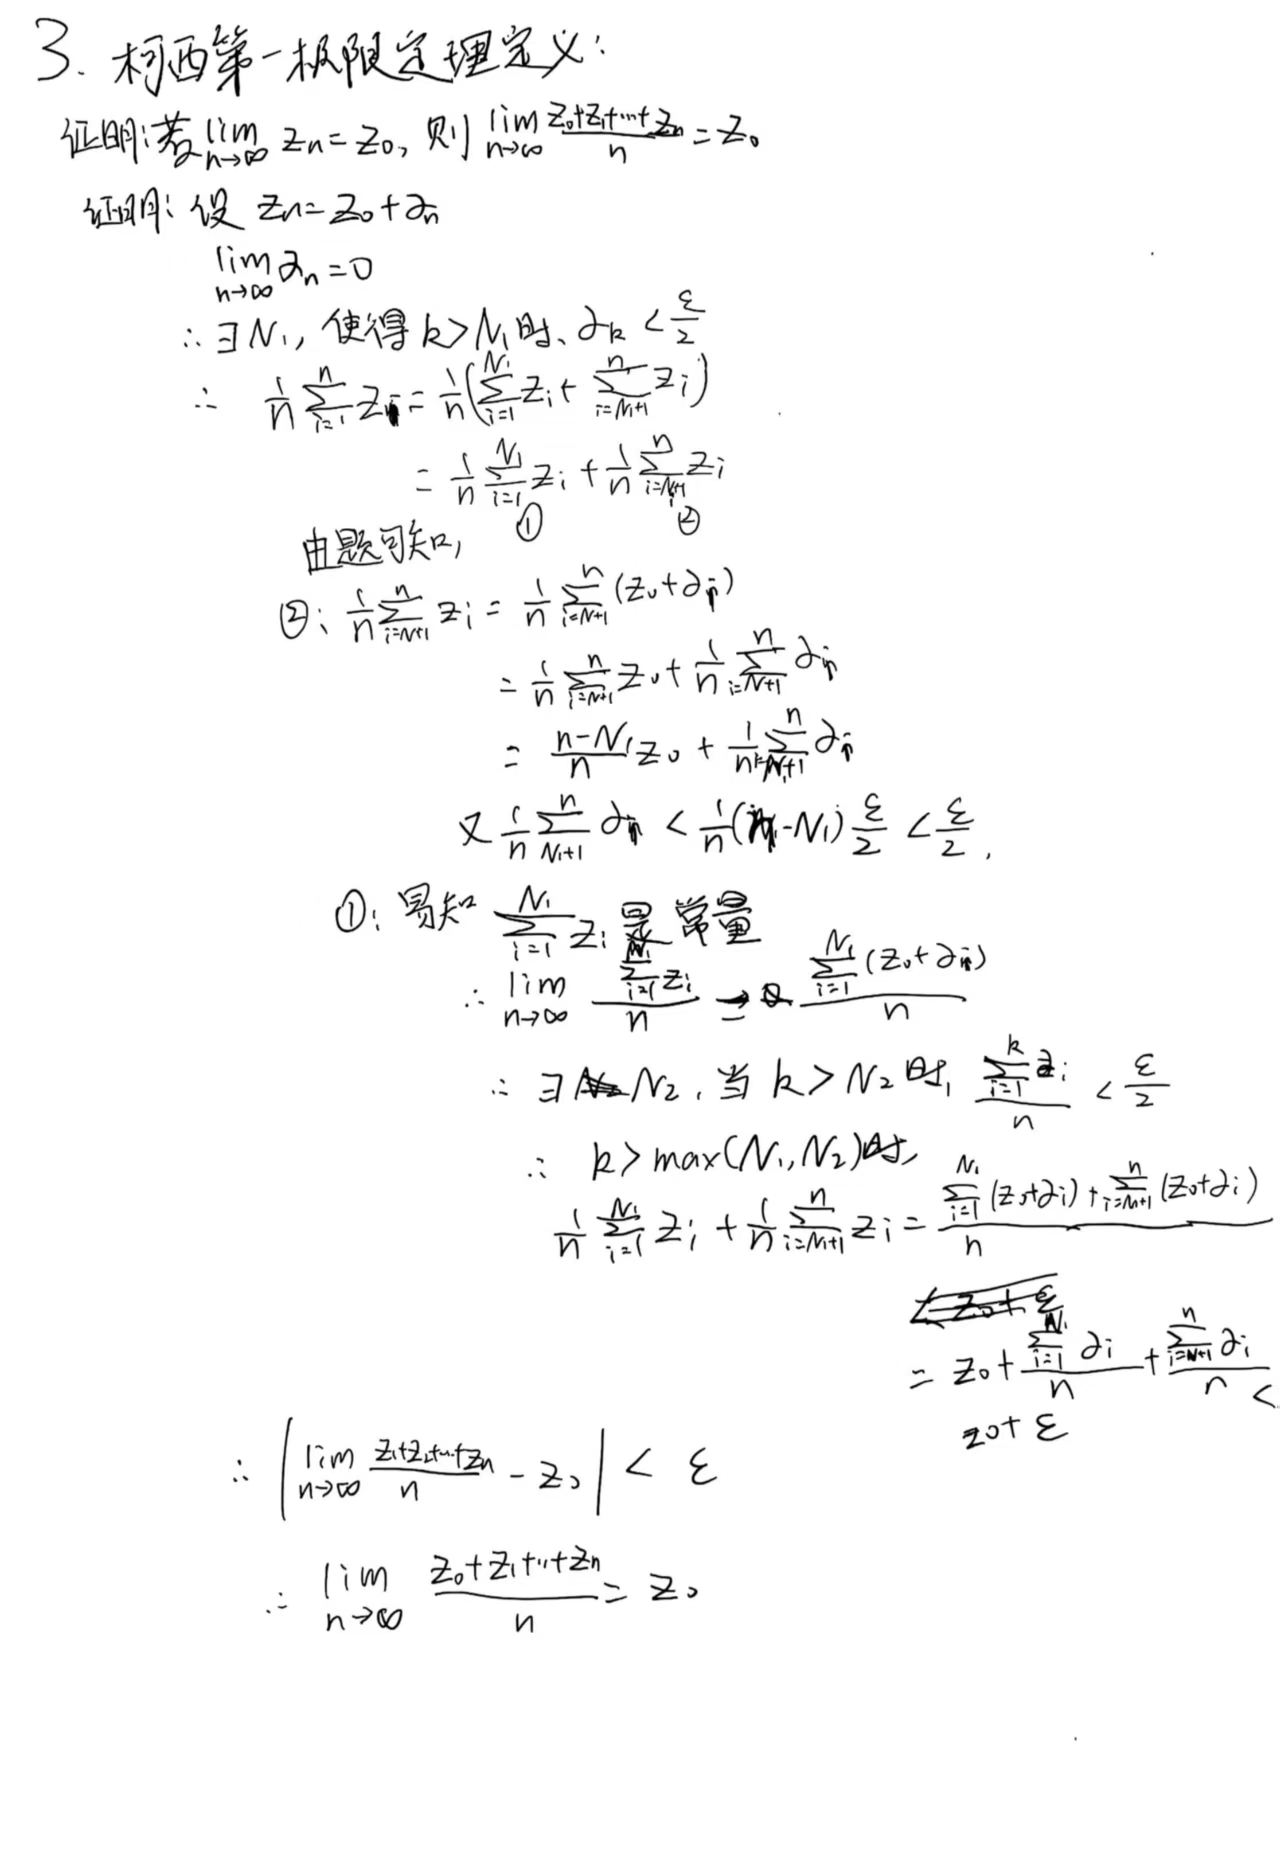 3. 柯西第一极限定理定义:
证明:若 lim_{n→∞} Zn = Z0, 则 lim_{n→∞} (Z0+Z1+…+Zn)/n = Z0
证明: 设 Zn = Z0 + ∂n
lim_{n→∞} ∂n = 0
∴ ∃N1, 使得 k>N1时、∂k < ε/2
∴ 1/n ∑_{i=1}^{n} Zi = 1/n (∑_{i=1}^{N1} Zi + ∑_{i=N1+1}^{n} Zi)
= 1/n ∑_{i=1}^{N1} Zi + 1/n ∑_{i=N1+1}^{n} Zi
① ②
由题可知,
②: 1/n ∑_{i=N+1}^{n} Zi = 1/n ∑_{i=N+1}^{n} (Z0+∂i)
= 1/n ∑_{i=N+1}^{n} Z0 + 1/n ∑_{i=N+1}^{n} ∂i
= (n-N1)/n Z0 + 1/n ∑_{i=N1+1}^{n} ∂i
又 1/n ∑_{N1+1}^{n} ∂i < 1/n (n-N1) ε/2 < ε/2 .
①: 易知 ∑_{i=1}^{N1} Zi 是 常量
∴ lim_{n→∞} (∑_{i=1}^{N1} Zi)/n = (∑_{i=1}^{N1} (Z0+∂i))/n
∴ ∃ N2 , 当 k > N2 时, (∑_{i=1}^{k} ∂i)/n < ε/2
∴ k > max(N1, N2)时,
1/n ∑_{i=1}^{N1} Zi + 1/n ∑_{i=N1+1}^{n} Zi = (∑_{i=1}^{N1} (Z0+∂i) + ∑_{i=N1+1}^{n} (Z0+∂i))/n
= Z0 + (∑_{i=1}^{N1} ∂i)/n + (∑_{i=N+1}^{n} ∂i)/n <
Z0 + ε
∴ | lim_{n→∞} (Z1+Z2+…+Zn)/n - Z0 | < ε
∴ lim_{n→∞} (Z0+Z1+…+Zn)/n = Z0